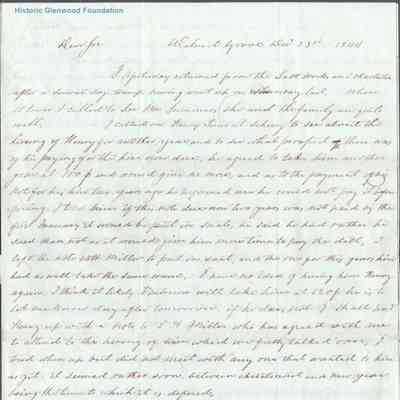 Historic Glenwood Foundation
Dear Sir Walnut Grove Dec 23rd 1844
I yesterday returned from the Salt works and
after a several days having went up on last. When
at town I called to See Mrs she and the family are quite
well. I called on Henry at to see about the
hireing of Henry for another year and to see what prospect there was
of his paying for the hire now due, he agreed to take him another
year at 100$ and would give no more, and as to the payment of the
not for his hire two years ago he informed me he could not pay it before
spring. I told him if the note due now two years was not paid by the
first January it would be put in suit, he said he had rather be
sued than not as it would give him more time to pay the debt, I
left the note with Miller to put in suit, and the one for this years hire
had as well take the same course. I have no idea of hireing him Henry
again. I think it likely will take him at 120$ he is to
let me know day after tomorrow, if he does not I shall send
Henry up with a note to S H Miller who has agreed with me
to attend to the hireing of him which we fully talked over, I
tried when up but did not meet with any one that wanted to hire
as yet. it seemed rather soon, between christmas and new year
being the time to which it is defered,